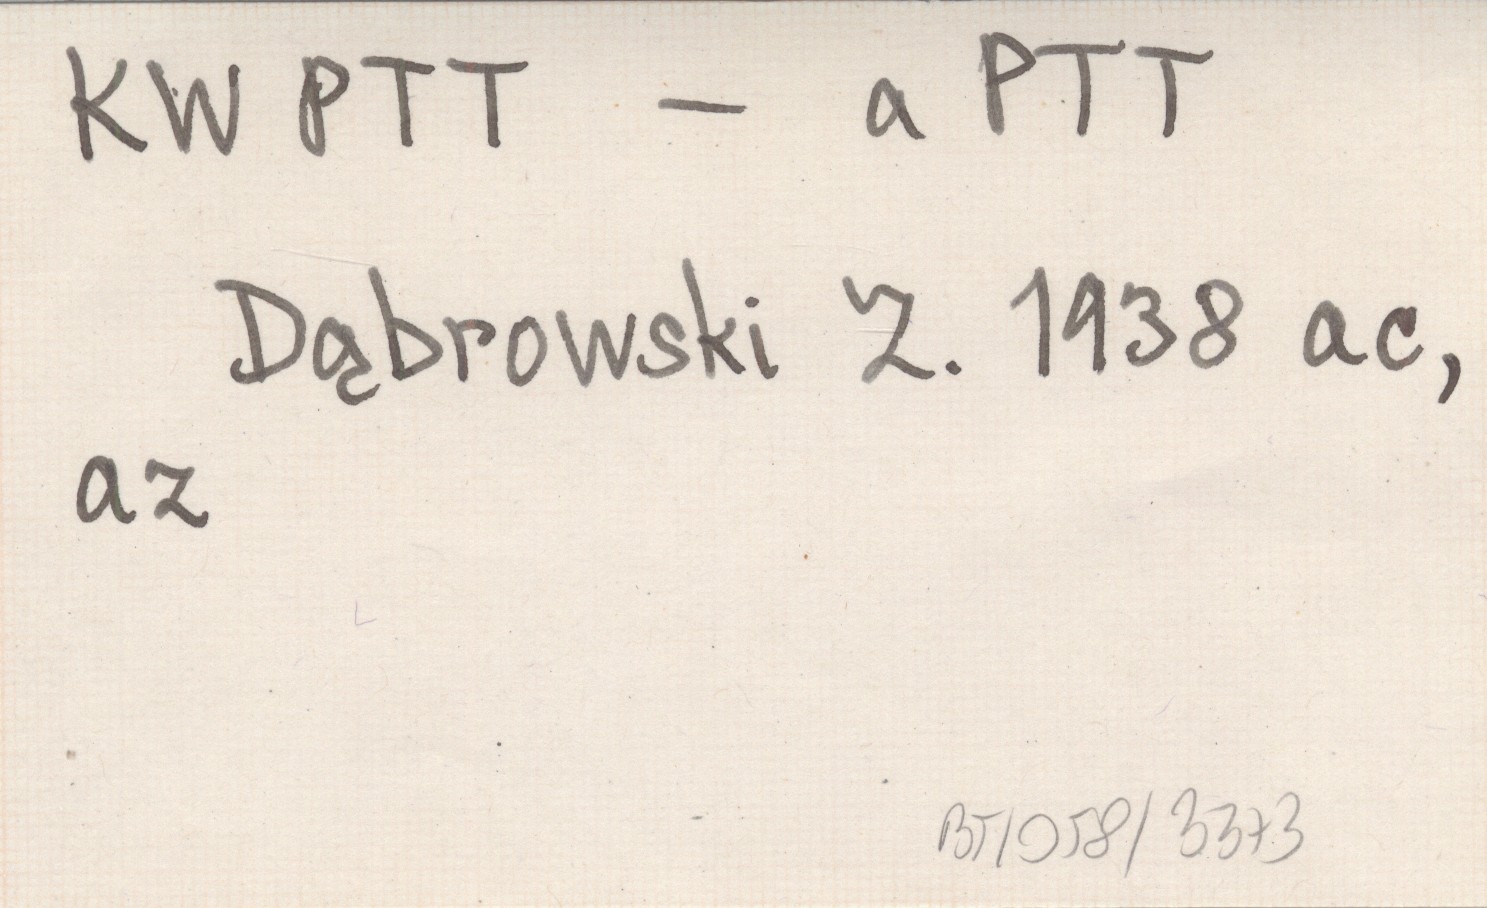 KW PTT — a PTT
Dąbrowski Z. 1938 ac,
az
BT/058/3373